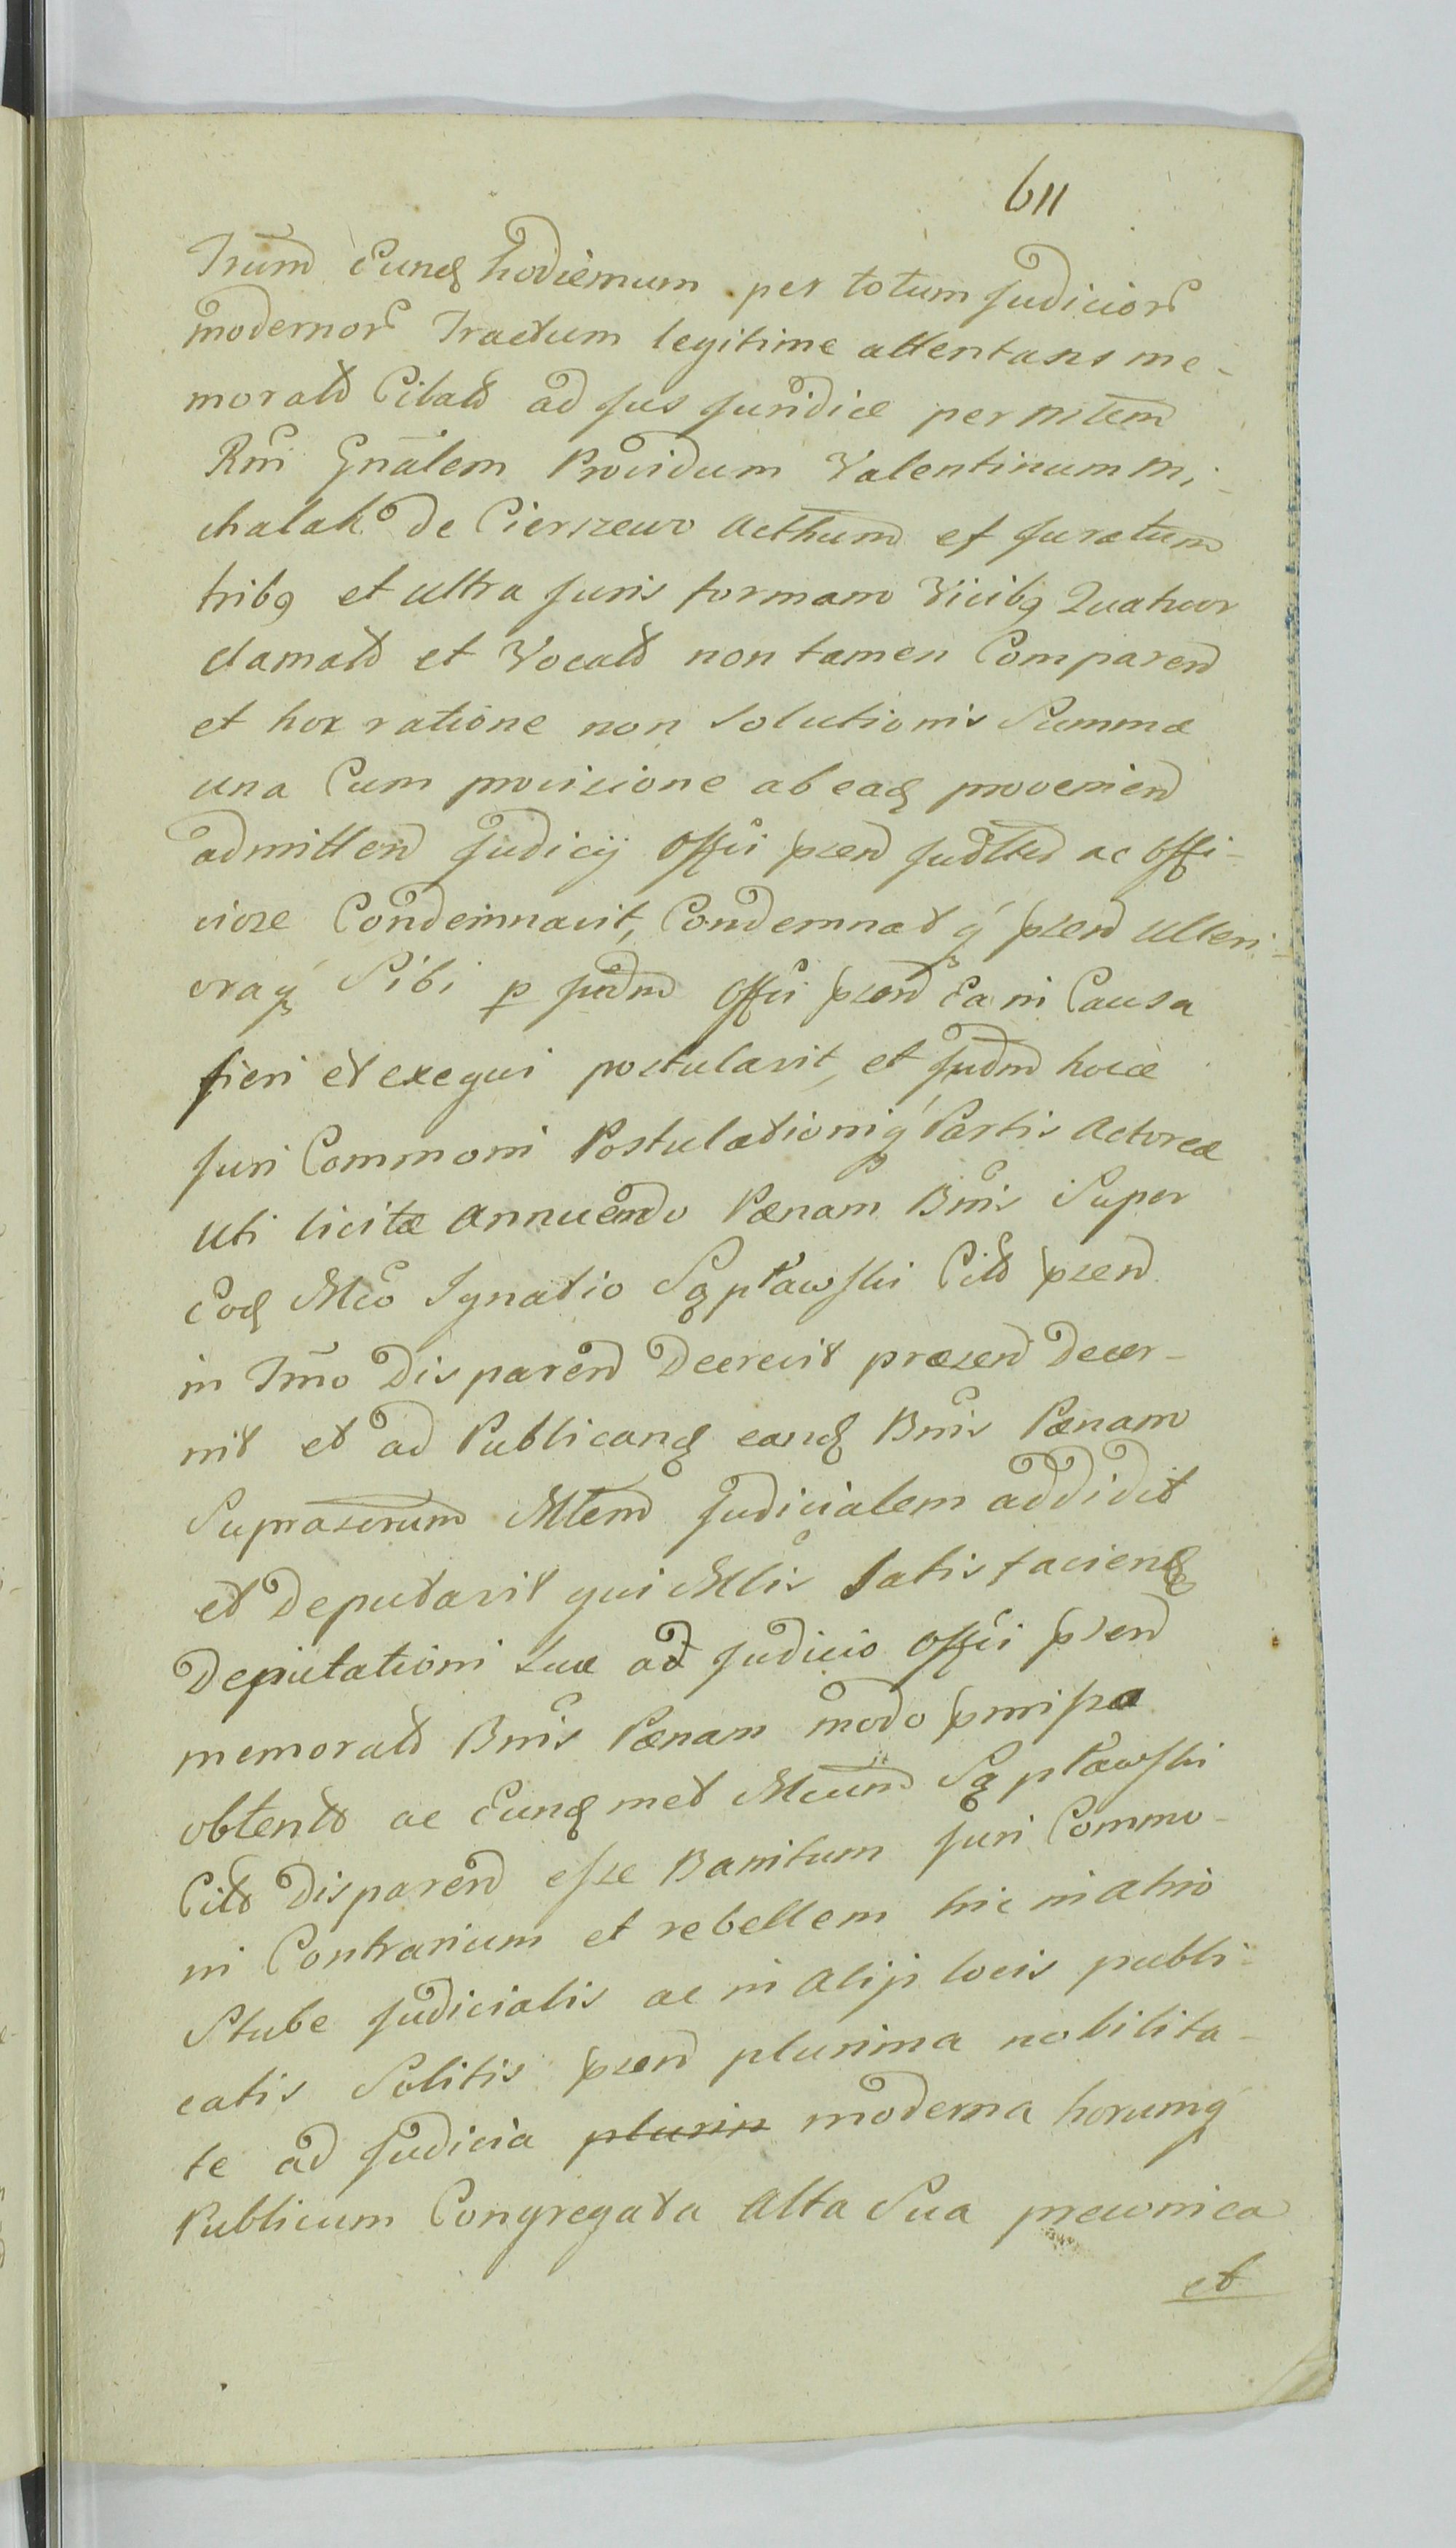 611
Trum̄ Eundꝫ hodiernum per totum Judicior
modernor Tractum legitime attentans me-
morat̄ Citat̄ ad Jus Juridice per Mtem̄
Rni Gnālem Providum Valentinum Mi-
chalak de Cierszewo Acthum̄ et Juratum
tribꝫ et ultra Juris formam Vicibꝫ Quatuor
clamat̄ et Vocat̄ non tamen Comparen̄
et hox ratione non Solutionis Summæ
una Cum provisione ab eadꝫ provenien̄
admitten̄ Judicij Offii pzen̄ Judltr ac Offi-
ciose Condemnavit, Condemnatqꝫ pzen̄ ulteri-
oraqꝫ Sibi p Judm Offii pzen̄ Ea in Causa
fieri et exequi postulavit, et Judm hocce
Juri Commoni Postulationiqꝫ Partis Actoreæ
uti licitæ annuendo Pænam Bnis Super
Eodꝫ Mco Ignatio Sąpławski Cit̄ pzen̄
in Tmo Disparen̄ Decrevit præzen̄ Decer-
nit et ad Publicandꝫ eandꝫ Bnis Pænam
Suprascrum̄ Mtem̄ Judicialem addidit
et Deputavit qui Mlis Satisfaciendꝫ
Deputationi suæ ad Judicio Offii pzen̄
memorat̄ Bnis Pænam modo pmisso
obtent̄ ac Eundꝫmet Mcum̄ Sąpławski
Cit̄ Disparen̄ esse Banitum Juri Commo-
ni Contrarium et rebellem hic in atrio
Stube Judicialis ac in alijs locis publi-
catis Solitis pzen̄ plurima nobilita-
te ad Judicia plurin moderna horumqꝫ
Publicum Congregata Alta Sua preconica
et